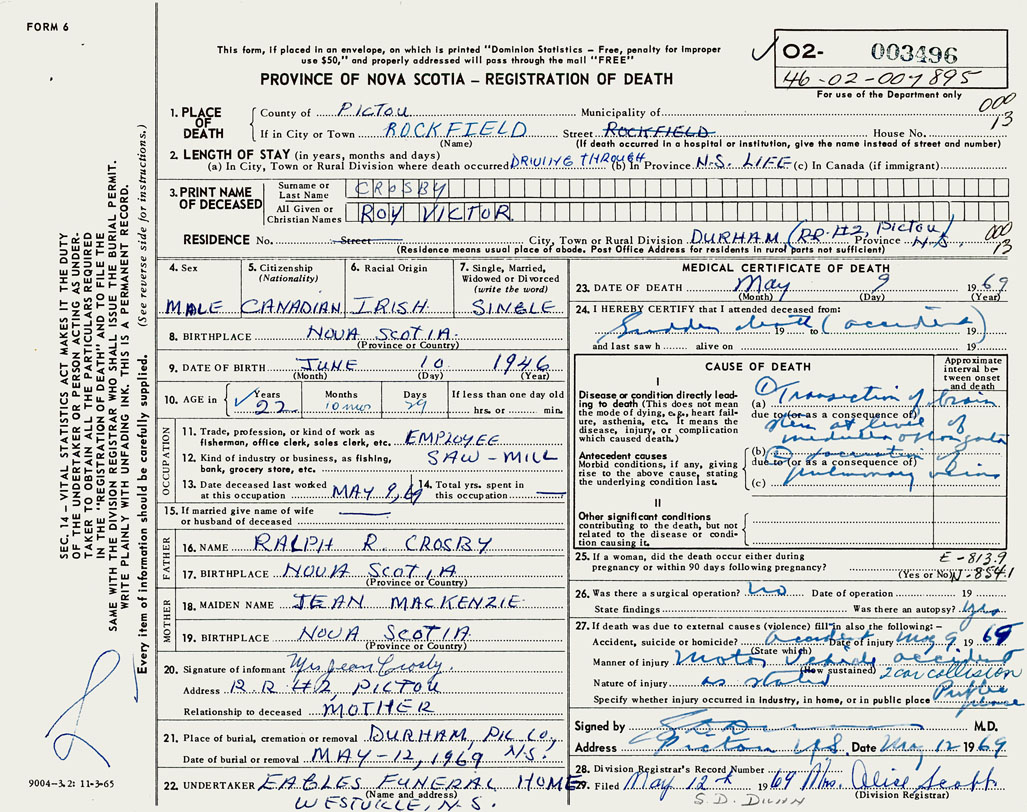 FORM 6
This form, if placed in an envelope, on which is printed "Dominion Statistics – Free, penalty for improper
use $50," and properly addressed will pass through the mail "FREE"
PROVINCE OF NOVA SCOTIA – REGISTRATION OF DEATH
02- 003496
46-02-007895
For use of the Department only
000
13
1. PLACE OF DEATH
County of PICTOU Municipality of
If in City or Town ROCKFIELD Street ROCKFIELD House No.
(Name) (If death occurred in a hospital or institution, give the name instead of street and number)
2. LENGTH OF STAY (in years, months and days)
(a) In City, Town or Rural Division where death occurred DRIVING THROUGH (b) In Province N.S. LIFE (c) In Canada (if immigrant)
3. PRINT NAME OF DECEASED
Surname or Last Name CROSBY
All Given or Christian Names ROY VICTOR
RESIDENCE No. Street City, Town or Rural Division DURHAM (RR #2, PICTOU) Province N.S.
(Residence means usual place of abode. Post Office Address for residents in rural parts not sufficient)
000
13
4. Sex
MALE
5. Citizenship
(Nationality)
CANADIAN
6. Racial Origin
IRISH
7. Single, Married,
Widowed or Divorced
(write the word)
SINGLE
8. BIRTHPLACE NOVA SCOTIA
(Province or Country)
9. DATE OF BIRTH JUNE 10 1946
(Month) (Day) (Year)
10. AGE in Years Months Days If less than one day old
22 10 mos 29 hrs. or min.
OCCUPATION
11. Trade, profession, or kind of work as
fisherman, office clerk, sales clerk, etc. EMPLOYEE
12. Kind of industry or business, as fishing,
bank, grocery store, etc. SAW-MILL
13. Date deceased last worked
at this occupation MAY 9, 69
14. Total yrs. spent in
this occupation
15. If married give name of wife
or husband of deceased
FATHER
16. NAME RALPH R. CROSBY
17. BIRTHPLACE NOVA SCOTIA
(Province or Country)
MOTHER
18. MAIDEN NAME JEAN MACKENZIE
19. BIRTHPLACE NOVA SCOTIA
(Province or Country)
20. Signature of informant Mrs Jean Crosby.
Address R.R #2, PICTOU
Relationship to deceased MOTHER
21. Place of burial, cremation or removal DURHAM, PIC. CO., N.S.
Date of burial or removal MAY-12, 1969
22. UNDERTAKER EAGLES FUNERAL HOME
(Name and address)
WESTVILLE, N.S.
MEDICAL CERTIFICATE OF DEATH
23. DATE OF DEATH May 9 1969
(Month) (Day) (Year)
24. I HEREBY CERTIFY that I attended deceased from:
Sudden death (accident)
19 to 19
and last saw h alive on 19
CAUSE OF DEATH
Approximate
interval be-
tween onset
and death
I
Disease or condition directly lead-
ing to death (This does not mean
the mode of dying, e.g., heart fail-
ure, asthenia, etc. It means the
disease, injury, or complication
which caused death.)
(a) 1 Transection of brain
due to (or as a consequence of)
stem at level of
medulla oblongata
Antecedent causes
Morbid conditions, if any, giving
rise to the above cause, stating
the underlying condition last.
(b) 2
due to (or as a consequence of)
pulmonary veins
(c)
II
Other significant conditions
contributing to the death, but not
related to the disease or condi-
tion causing it.
25. If a woman, did the death occur either during
pregnancy or within 90 days following pregnancy?
(Yes or No)
E-813.9
N-854.1
26. Was there a surgical operation? no Date of operation 19
State findings Was there an autopsy? yes
27. If death was due to external causes (violence) fill in also the following: –
Accident, suicide or homicide? accident Date of injury May 9 1969
(State which)
Manner of injury Motor Vehicle accident
(How sustained) 2 car collision
Nature of injury as stated
Specify whether injury occurred in industry, in home, or in public place Public place
Signed by M.D.
Address Pictou N.S. Date May 12 1969
28. Division Registrar's Record Number
29. Filed May 12th 1969 Mrs. Alice Scott
(Division Registrar)
SEC. 14 – VITAL STATISTICS ACT MAKES IT THE DUTY
OF THE UNDERTAKER OR PERSON ACTING AS UNDER-
TAKER TO OBTAIN ALL THE PARTICULARS REQUIRED
IN THE "REGISTRATION OF DEATH" AND TO FILE THE
SAME WITH THE DIVISION REGISTRAR WHO SHALL ISSUE THE BURIAL PERMIT.
WRITE PLAINLY WITH UNFADING INK. THIS IS A PERMANENT RECORD.
Every item of information should be carefully supplied. (See reverse side for instructions.)
9004-3.2: 11-3-65